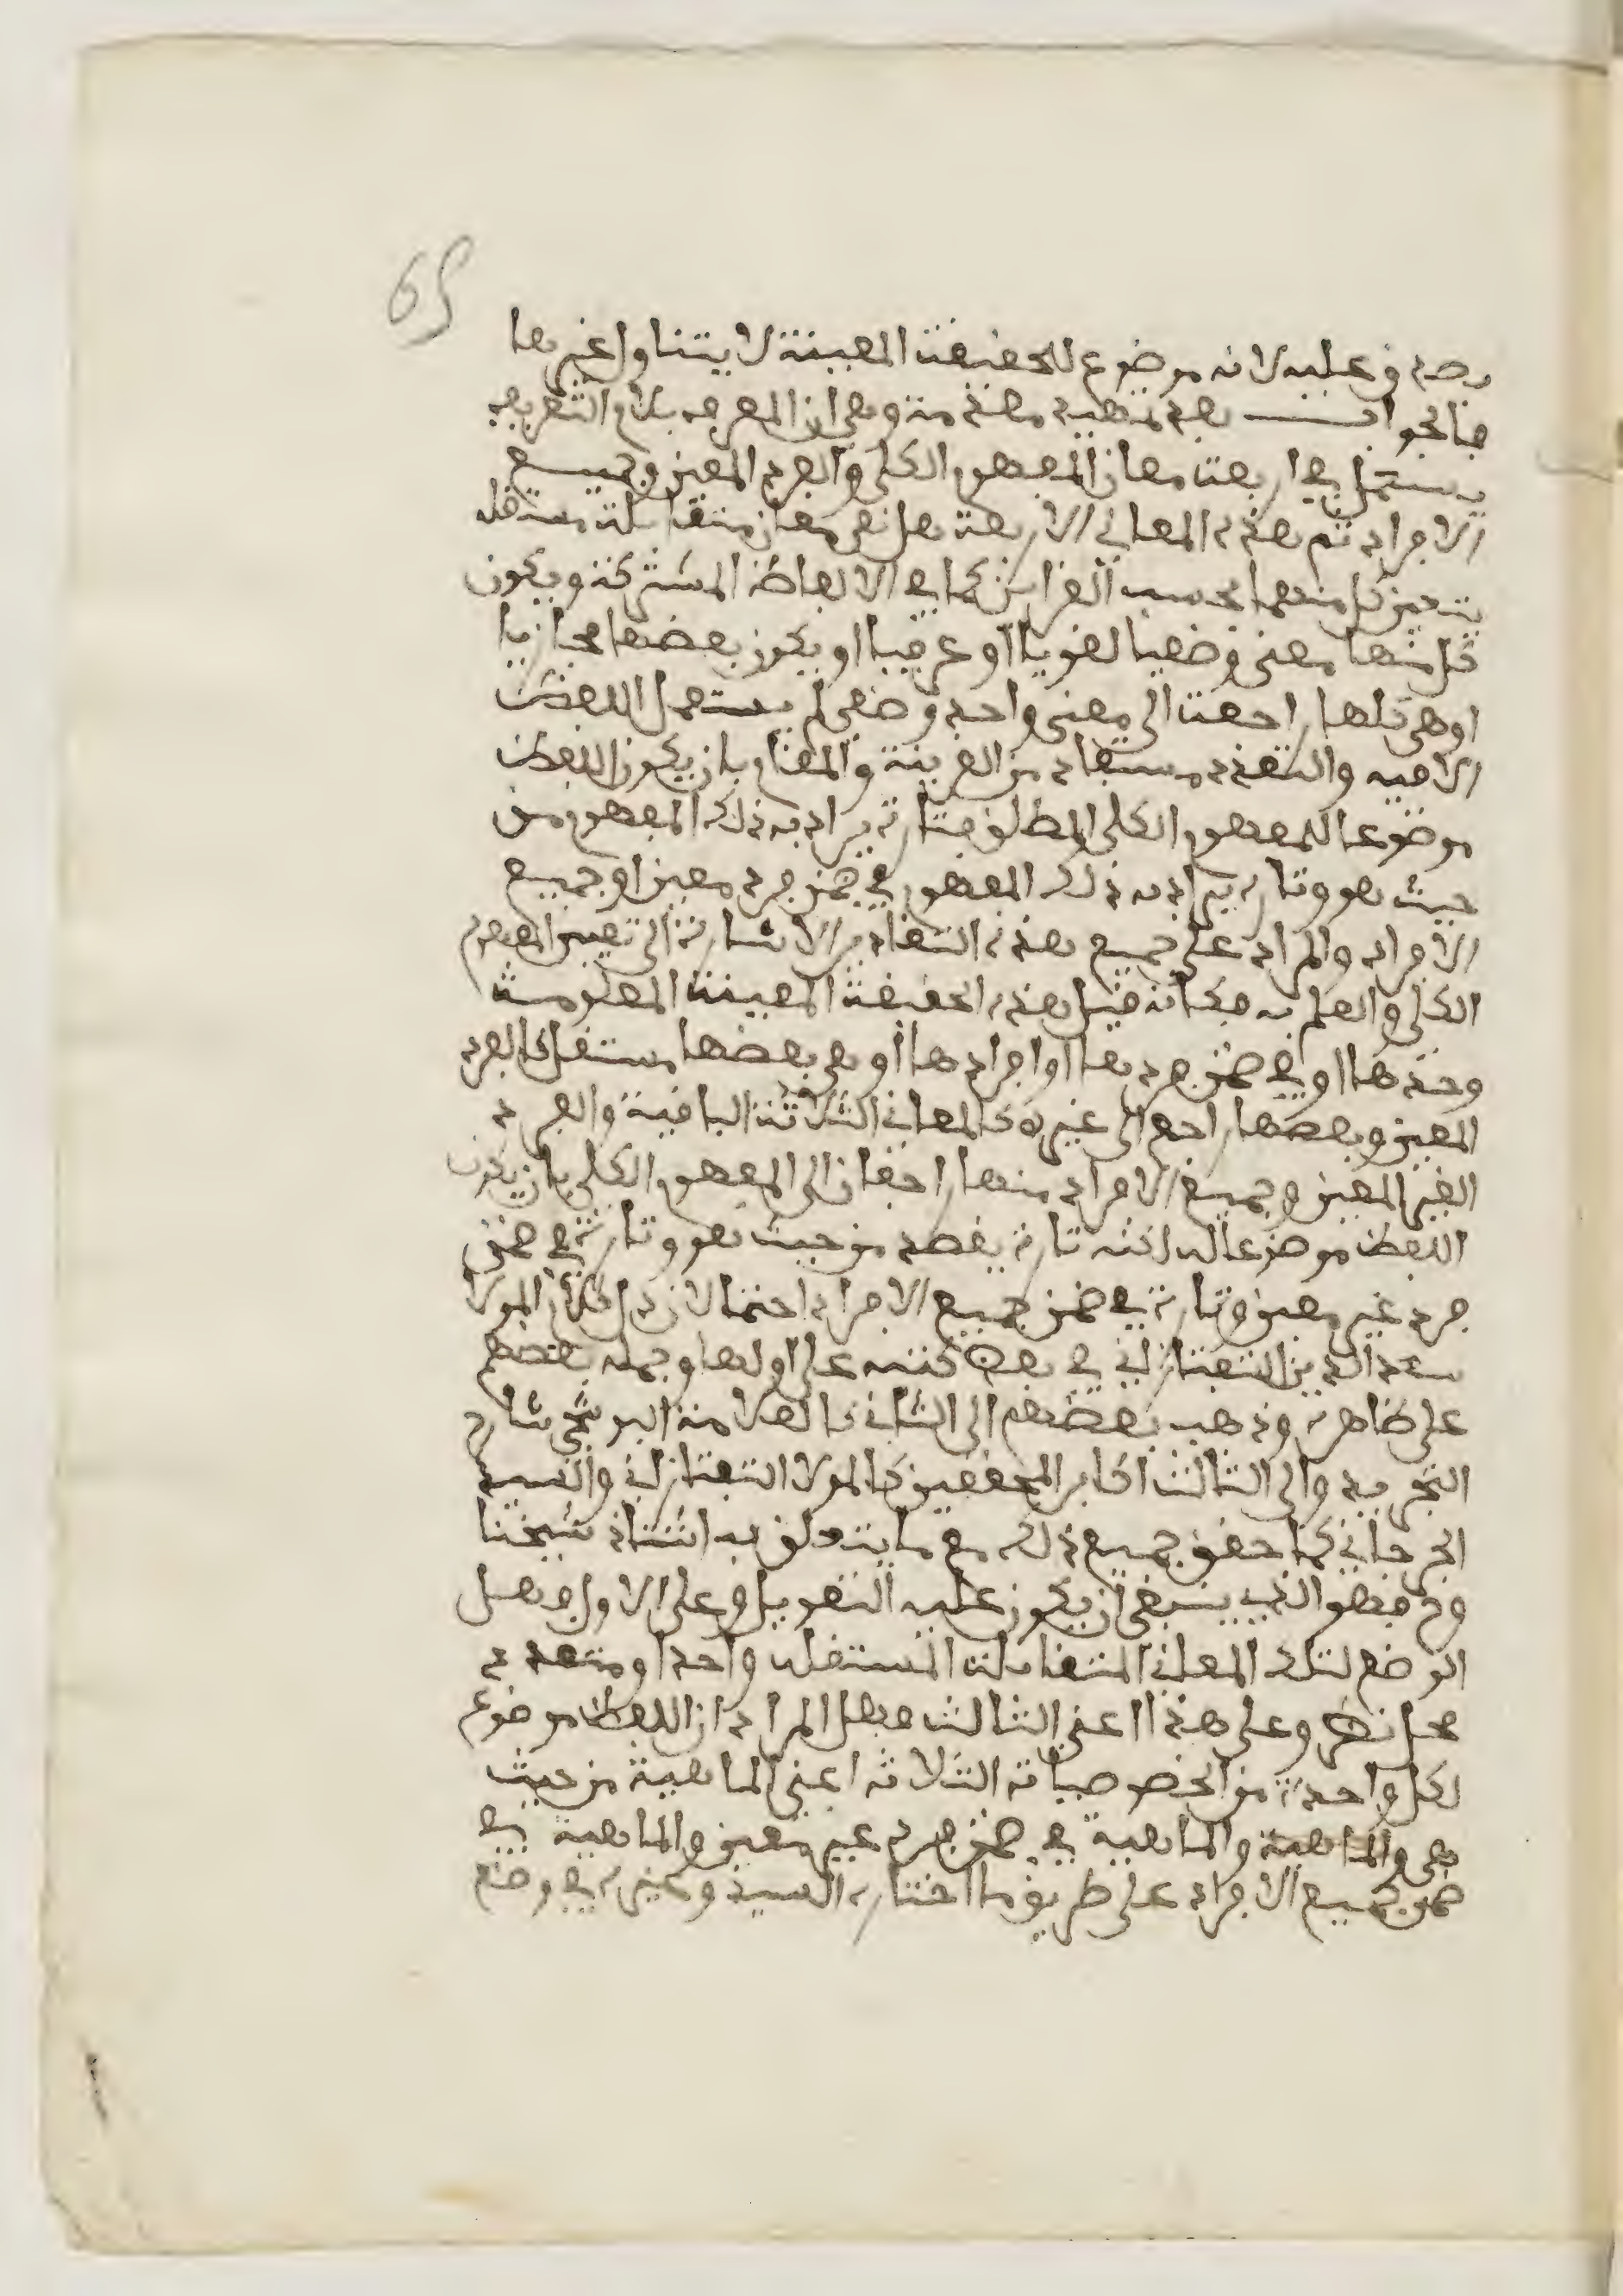 65
يصدق عليه لانه موضوع للحقيقة المعينة لا يتناول غيرها
فالجواب بعد تمهيد مقدمة وهي ان المعرف بلام التعريف
يستعمل في اربعة معان المفهوم الكلي والفرد المعين وجميع
الافراد ثم هذه المعاني الاربعة هل هي معان متقابلة مستقلة
يتعين كل منها بحسب القرائن كما في الالفاظ المشتركة ويكون
كل منها معنى وضعيا لغويا او عرفيا او يكون بعضها مجازيا
او هي كلها راجعة الى معنى واحد وضعي لم يستعمل اللفظ
الا فيه والتعدد مستفاد من القرينة والمقام بان يكون اللفظ
موضوعا للمفهوم الكلي المطلق فتارة يراد به ذلك المفهوم من
حيث هو وتارة يراد به ذلك المفهوم في ضمن فرد معين او جميع
الافراد والمراد على جميع هذه التقادير الاشارة الى تعيين المفهوم
الكلي والعلم به فكانه قيل هذه الحقيقة المعينة المعلومة
وحدها او في ضمن فردها او افرادها او هي بعضها مستقل كالفرد
المعين وبعضها راجع الى غيره كالمعاني الثلاثة الباقية والفرد
الغير المعين وجميع الافراد منها راجعان الى المفهوم الكلي بان يكون
اللفظ موضوعا له لكنه تارة يقصد من حيث هو وتارة في ضمن
فرد غير معين وتارة في ضمن جميع الافراد احتمالان دل كلام المولا
سعد الدين التفتازاني في بعض كتبه على اولها وحمله بعضهم
على ظاهره وذهب بعضهم الى الثاني كالعلامة البوشجي شارح
التجريد والى الثالث اكابر المحققين كالمولا التفتازاني والسيد
الجرجاني كما حقق جميع ذلك مع ما يتعلق به استاذ شيخنا
وح فهو الذي ينبغي ان يكون عليه التعويل وعلى الاول فهل
الوضع لتلك المعاني المتقابلة المستقلة واحد او متعدد
محل نظر وعلى هذا اعني الثالث فهل المراد ان اللفظ موضوع
لكل واحدة من الخصوصيات الثلاثة اعني الماهية من حيث
هي والماهية والماهية في ضمن فرد غير معين والماهية في
ضمن جميع الافراد على طريق ما اختاره السيد وغيره في وضع